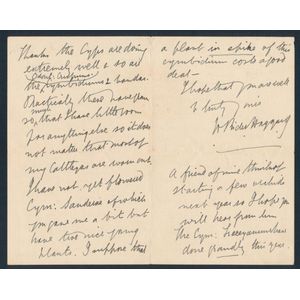 Thanks the Cyps are doing
extremely well & so are
the Cymbidiums & Vandas.
Practically these have
so, that I have little room
for anything else so it does
not matter that most of
my Cattleyas are worn out.
I have not yet flowered
Cym: Sanderae of which
you gave me a bit but
have two nice young
plants. I suppose that
a plant in spike of this
cymbidium costs a good
deal —
I hope that you
truly yours
H Rider Haggard
A friend of mine thinks of
starting a few orchids
next year so I hope you
will hear from him
The Cym: have
done grandly this year.